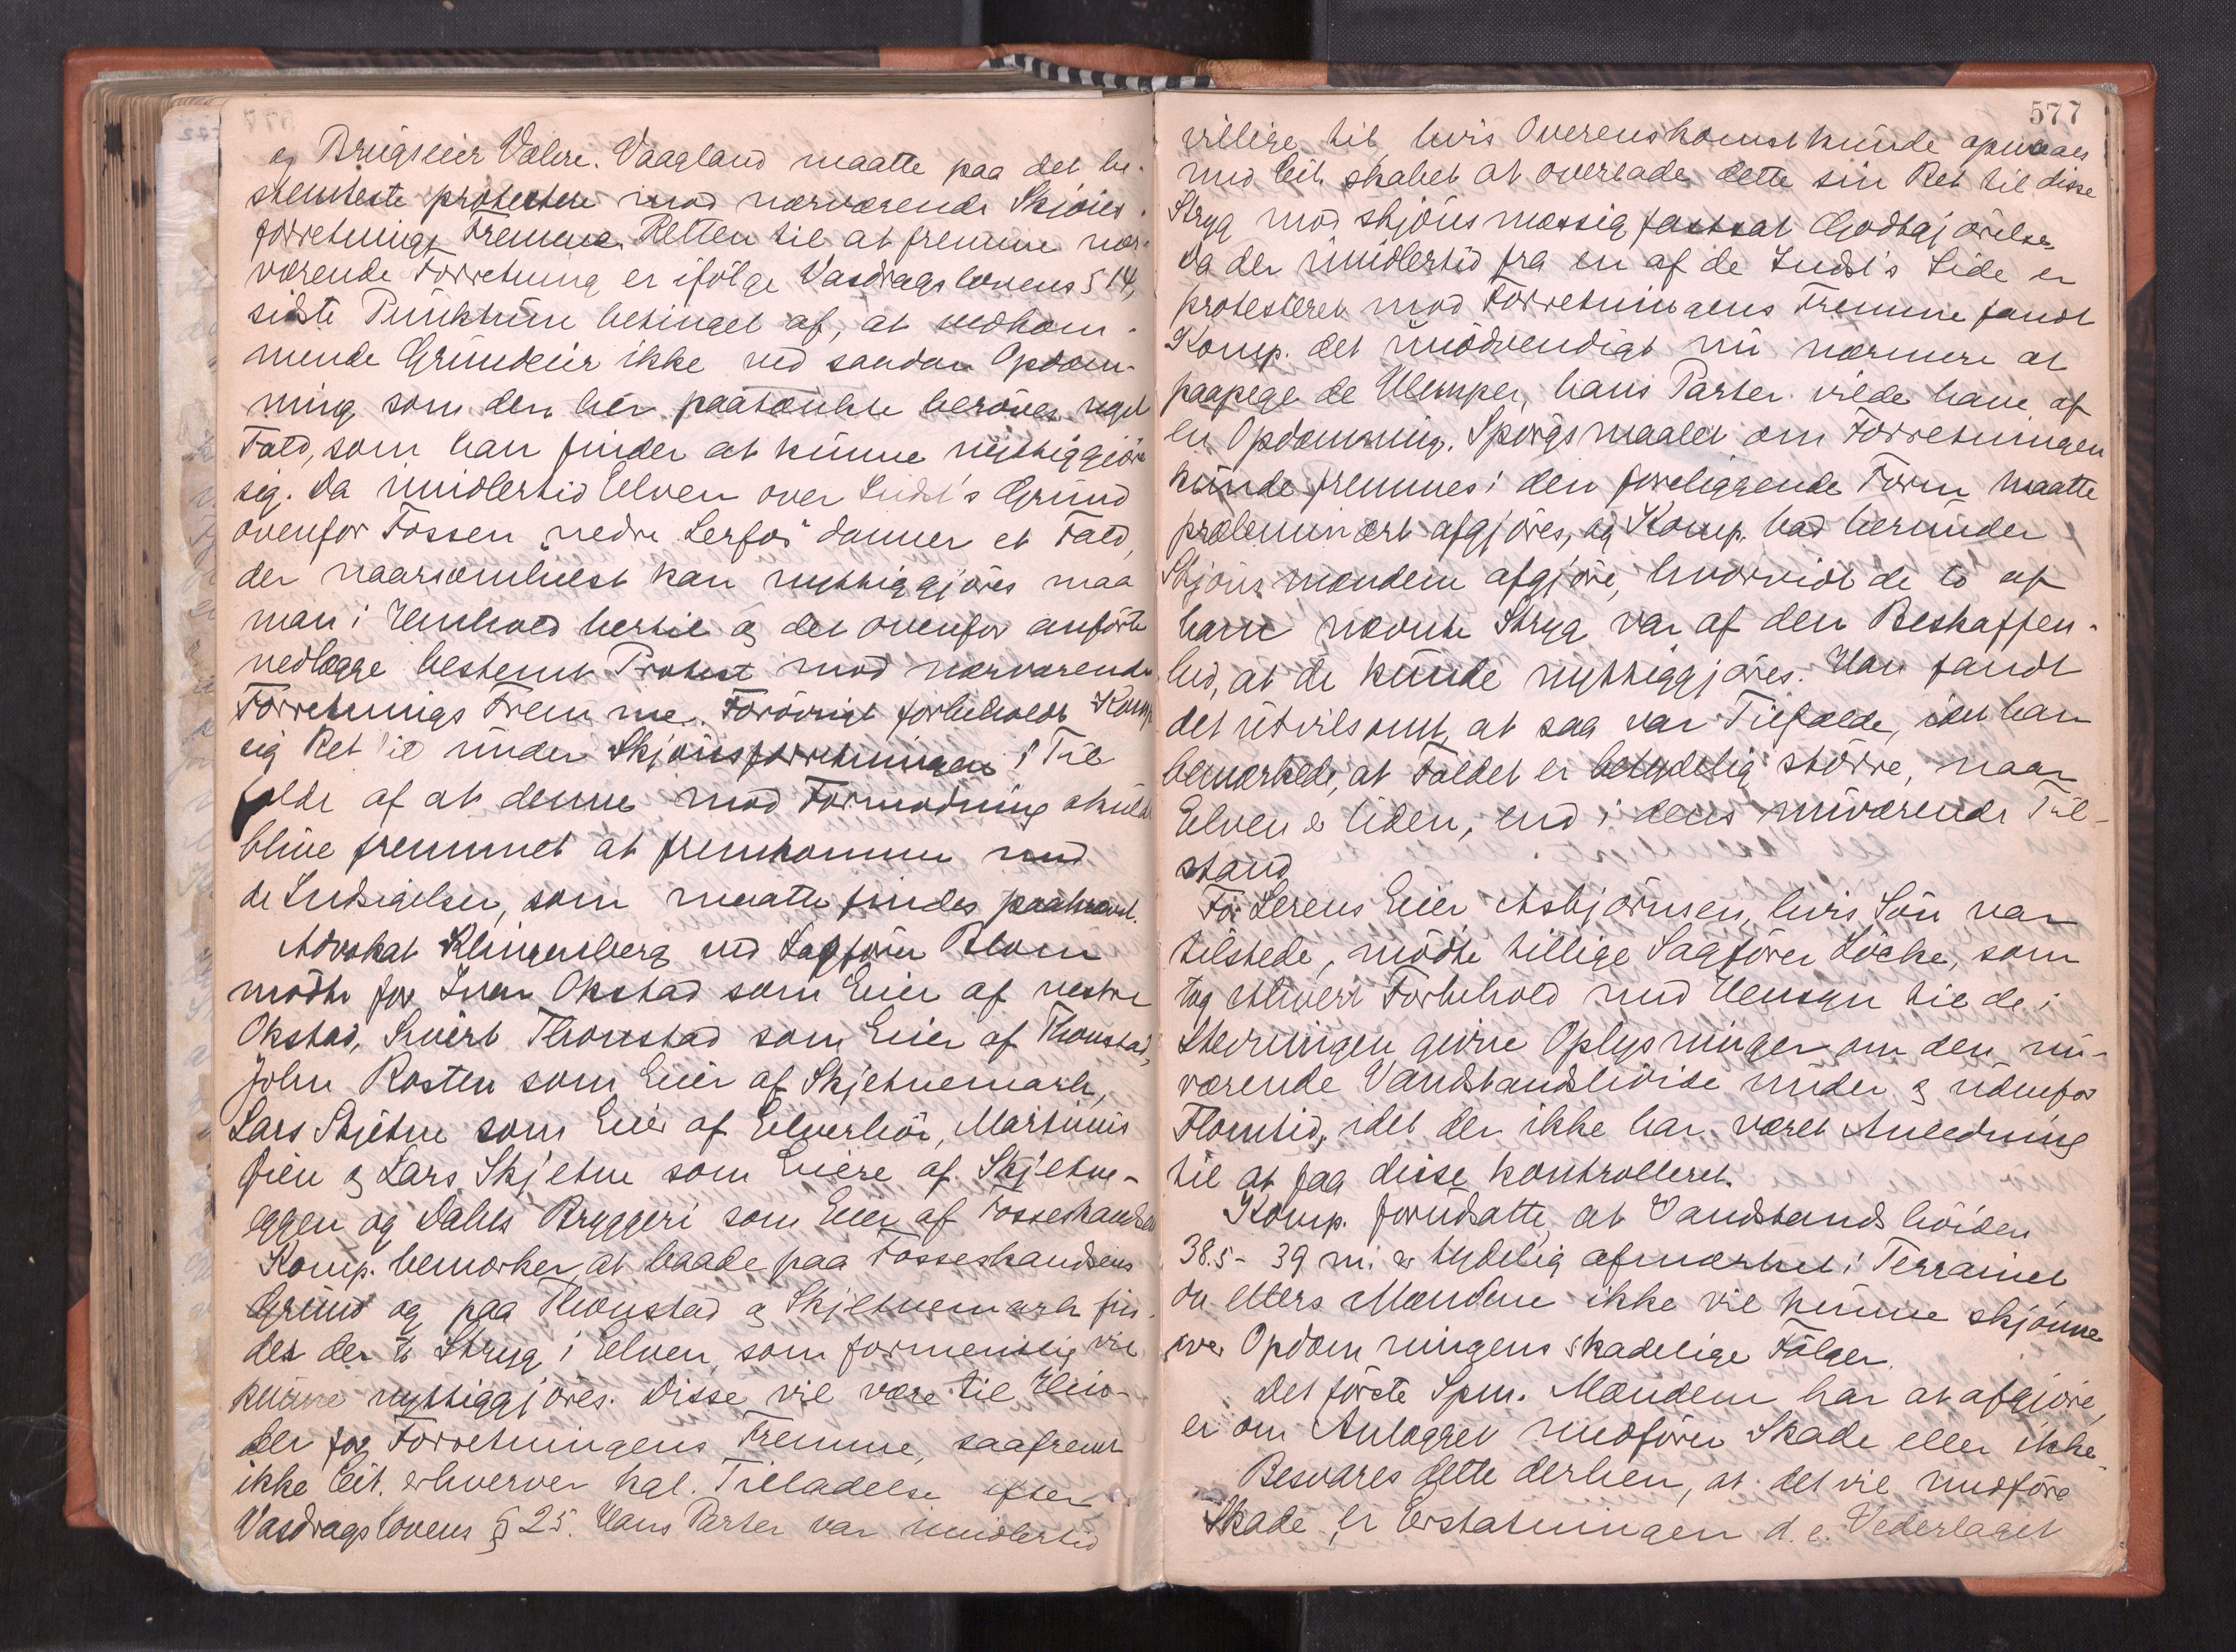 og Brugseier Valere. Vaagland maatte paa det be-
stemteste protestere mod nærværende Skjøns-
forretnings Fremme. Retten til at fremme nær-
værende Forretning er ifölge Vasdragslovens § 14,
sidste Punktum betinget af, at vedkom-
mende Grundeier ikke ved saadan Opdæm-
ning som den her paatænkte beröves noget
Fald, som han finder at kunne nyttiggjöre
sig. Da imidlertid Elven over Indst's Grund
ovenfor Fossen "nedre Lerfos" danner et Fald,
der naarsomhelst kan nyttiggjöres maa
man i Henhold hertil og det ovenfor anförte
nedlægge bestemt Protest mod nærværende
Forretnings Fremme. Forövrigt forbeholdt Komp.
sig Ret til under Skjönsforretningen i Til-
fælde af at denne mod Formodning skulde
blive fremmet at fremkomme med
de Indsigelser, som maatte findes paakrævet.
Advokat Klingenberg ved Sagförer Blom
mödte for Iver Okstad som Eier af vestre
Okstad, Sivert Thonstad som Eier af Thonstad,
John Rosten som Eier af Skjetnemark,
Lars Skjetne som Eier af Elverhöi, Martinus
Öien og Lars Skjetne som Eiere af Skjetne-
eggen og Dahls Bryggeri som Eier af Fosseskandsen
Komp. bemærker, at baade paa Fosseskandsens
Grund og paa Thonstad og Skjetnemark fin-
des der to Stryg i Elven, som formentlig vil
kunne nyttiggjöres. Disse vil være til Hin-
der for Forretningens Fremme, saafremt
ikke Cit. erhverver kgl. Tilladelse efter
Vasdragslovens § 25. Hans Parter var imidlertid
577
villige til, hvis Overenskomst kunde opnaaes
med Cit. skabet at overlade dette sin Ret til disse
Stryg mod skjönsmæssig fastsat Godtgjörelse.
Da der imidlertid fra en af de Indst's Side er
protesteret mod Forretningens Fremme fandt
Komp. det unödvendigt nu nærmere at
paapege de Ulemper, hans Parter vilde have af
en Opdæmning. Spörgsmaalet om Forretningen
kunde fremmes i den foreliggende Form maatte
præleminært afgjöres, og Komp. bad herunder
Skjönsmændene afgjöre, hvorvidt de to af
ham nævnte Stryg var af den Beskaffen-
hed, at de kunde nyttiggjöres. Han fandt
det utvilsomt, at saa var Tilfælde, idet han
bemærkede, at Faldet er betydelig större, naar
Elven er liden, end i dens nuværende Til-
stand
For Lerens Eier Asbjörnsen, hvis Sön var
tilstede, mödte tillige Sagförer Löcke, som
tog ethvert Forbehold med Hensyn til de i
Stevningen givne Oplysninger om den nu-
værende Vandstandshöide under og udenfor
Flomtid, idet der ikke har været Anledning
til at faa disse kontrolleret.
Komp. forudsatte, at Vandstandshöiden
38.5 - 39 m. er tydelig afmærket i Terrainet
da ellers Mændene ikke vil kunne skjönne
over Opdæmningens skadelige Fölger.
Det förste Spm. Mændene har at afgjöre,
er om Anlægget medförer Skade eller ikke.
Besvares dette derhen, at det vil medföre
Skade, er Erstatningen d.e. Vederlaget